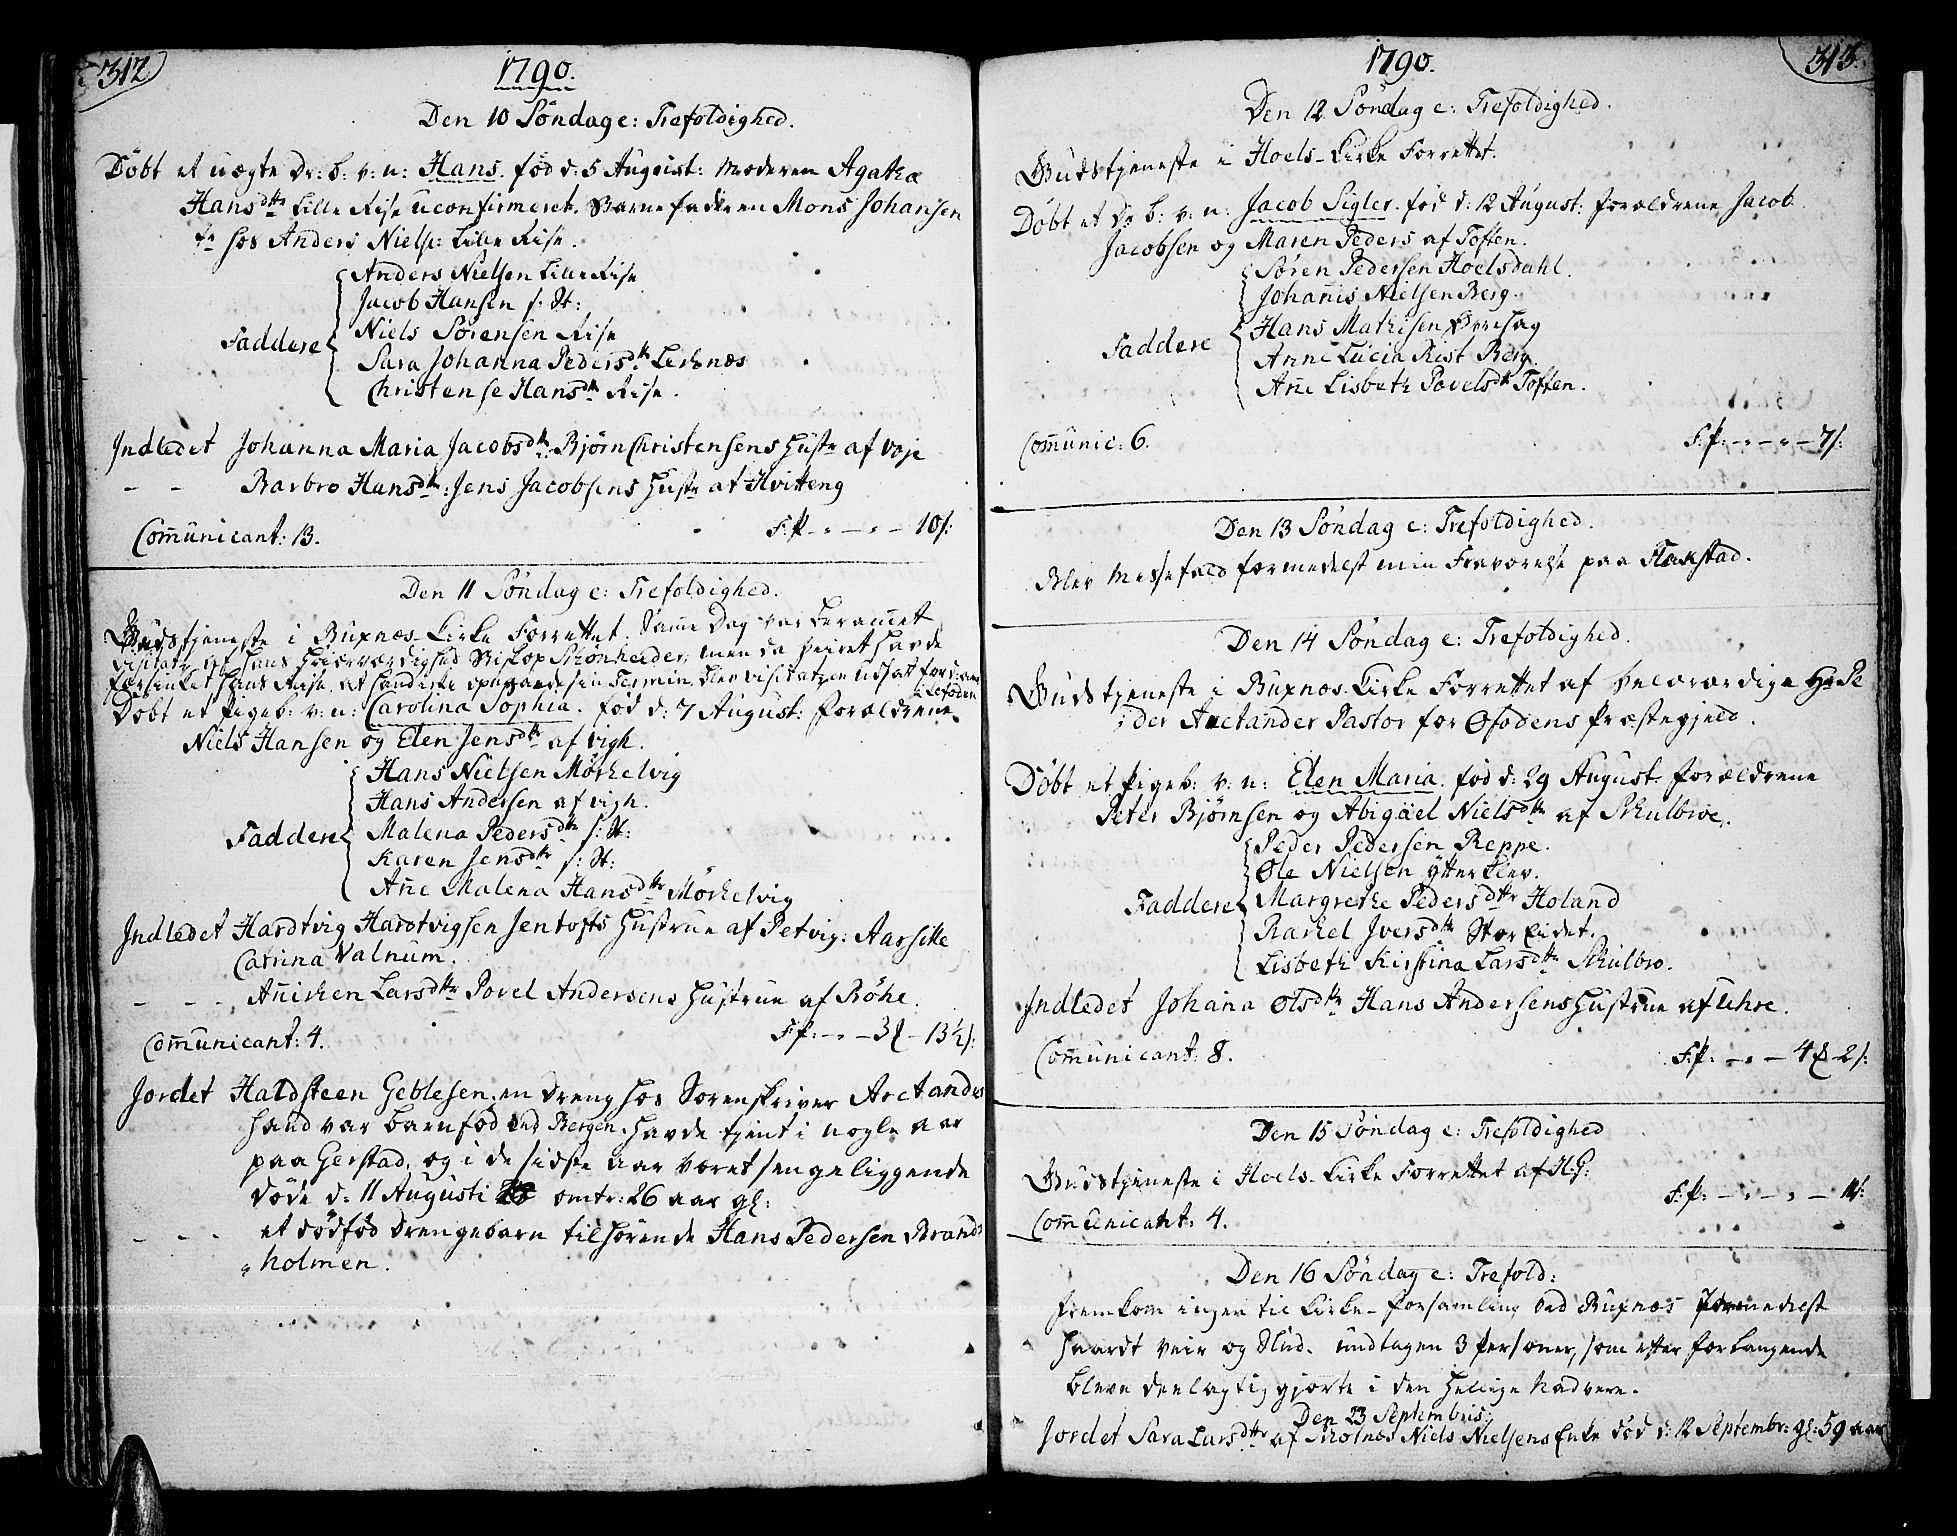 312
1790.
Den 10 Söndag e: Trefoldighed.
Döbt et uægte Dr: b: v: n: Hans. fød d: 5 August: Moderen Agatha
Hansdtr Lille Rise uconfirmeret. Barnefaderen Mons Johansen
hos Anders Niels: Lille Rise.
Anders Nielsen Lille Rise
Jacob Hansen s: St:
Niels Sörensen Rise
Faddere
Sara Johanna Pedersdtr Leknæs
Christense Hansdtr Rise.
Indledet Johanna Maria Jacobsdtr Bjørn Christensens Hustr af Voje
- - Barbro Hansdtr: Jens Jacobsens Hustr af Hvitteng
Comunicant: 13. F: P - " - " - 10 s:
Den 11 Söndag e: Trefoldighed.
Gudstjeneste i Buxnæs Kirke Forrettet. Same Dag var berammet
visitatz af Hans Höiærværdighed Biskop Schönheider, men da Veiret havde
forsinket Hans Reise, at han ikke opnaaede sin Termin, blev visitatzen udsatt for d: an
i Lofoden
Döbt et Pigeb: v: n: Carolina Sophia. fød d: 7 August: Forældrene
Niels Hansen og Elen Jensdtr af vigh.
Hans Nielsen Mörkelvig
Hans Andersen af vigh.
Faddere
Malena Pedersdtr s: St:
Karen Jensdtr s: St:
Añe Malena Hansdtr Mörkelvig
Indledet Hardtvig Hardtvigsen Jentofts Hustrue af Petvig: Aarsille
Catrina Valnum.
- - - Añichen Larsdtr Povel Andersens Hustrue af Böhe.
Comunicant: 4. F: p: - " - 3 - 13½ s:
Jordet Haldsteen Geblesen, en Dreng hos Sorenskriver Arctander
hand var barnfød ved Bergen. havde tjent i nogle aar
paa Gerstad, og i de sidste aar været sengeliggende
døde d: 11 Augusti omtr: 26 aar gl:
- - - et dödfød Drengebarn tilhörende Hans Pedersen Brands
" holmen.
313.
1790.
Den 12 Söndag e: Trefoldighed.
Gudstjeneste i Hoels-Kirke Forrettet.
Döbt et Dr b: v: n: Jacob Sigler. fød d: 12 August: Forældrene Jacob
Jacobsen og Maren Peders af Toften.
Sören Pedersen Hoelsdahl.
Johañis Nielsen Berg.
Faddere
Hans Mathisen Örehag
Anne Lucia Rist Berg.
Añe Lisbeth Povelsdtr Toften.
Comunic: 6. F: p: - " - " - 7 s:
Den 13 Söndag e: Trefoldighed.
Blev Messefald formedelst min Fraværelse paa Flakstad.
Den 14 Söndag e: Trefoldighed.
Gudstjeneste i Buxnæs Kirke Forrettet af velærværdige Hr Pe
der Arctander Pastor for Ofodens Præstegjeld.
Döbt et Pigeb: v: n: Elen Maria. fød d: 29 August. Forældrene
Peter Bjørnsen og Abigäel Nielsdtr af Skulbroe.
Peder Pedersen Reppe.
Ole Nielsen ÿtterKlev.
Faddere
Margrethe Pedersdtr Holand
Rachel Iversdtr Storeidet.
Lisbeth Kirstina Larsdtr Skulbro.
Indledet Johana Olsdtr Hans Andersens Hustrue af Uhre.
Comunicant: 8. F: p: - " - 4 - 2 s:
Den 15 Söndag e: Trefoldighed
Gudstjeneste i Hoels-Kirke Forrettet af H: G:
F: p: - " - " - 11 s:
Comunicant: 4.
Den 16 Söndag e: Trefold:
fremkom ingen til Kirke-forsamling ved Buxnæs formedelst
haardt veir og Slud. undtagen 3 Personer, som efter forlangende
bleve deelagtig gjorte i den Hellige Nadvere.
Den 23 Septembris:
Jordet Sara Larsdtr af Skotnæs Niels Nielsens Enke død d: 12 Septembr: gl: 59 aar